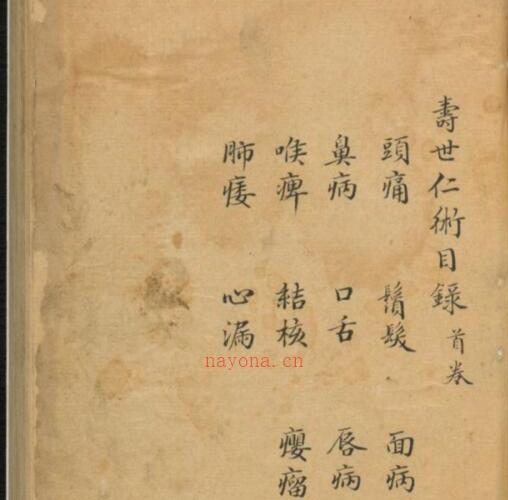 壽世仁術目錄 首券
頭痛 鬚髮 面病
鼻病 口舌 唇病
喉痺 結核 癭瘤
肺痿 心漏
nayona.cn